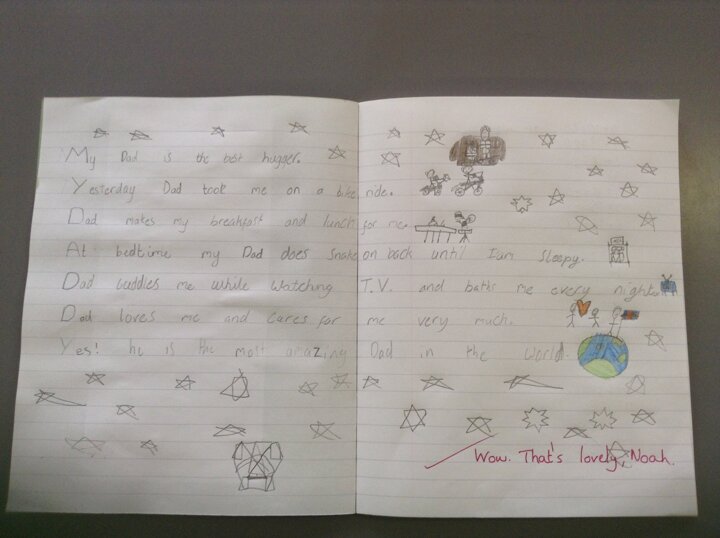 My Dad is the best hugger.
Yesterday Dad took me on a bike ride.
Dad makes my breakfast and lunch for me.
At bedtime my Dad does snake on back until I am sleepy.
Dad cuddles me while watching T.V. and baths me every night.
Dad loves me and cares for me very much.
Yes! he is the most amazing Dad in the world.
Wow. That's lovely, Noah.